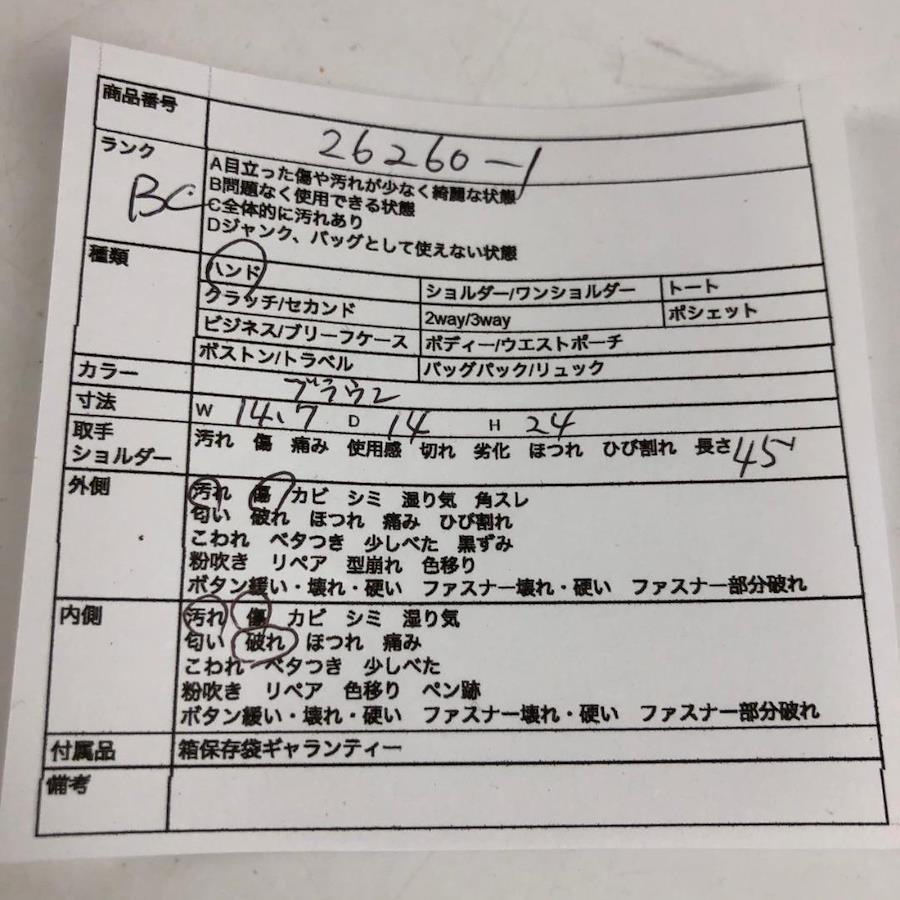 商品番号 26260-1
ランク BC
A目立った傷や汚れが少なく綺麗な状態
B問題なく使用できる状態
C全体的に汚れあり
Dジャンク、バッグとして使えない状態
種類
ハンド ショルダー/ワンショルダー トート
クラッチ/セカンド 2way/3way ポシェット
ビジネス/ブリーフケース ボディー/ウエストポーチ
ボストン/トラベル バッグパック/リュック
カラー ブラウン
寸法 W 14.7 D 14 H 24
取手 汚れ 傷 痛み 使用感 切れ 劣化 ほつれ ひび割れ 長さ 45
ショルダー
外側 汚れ 傷 カビ シミ 湿り気 角スレ
匂い 破れ ほつれ 痛み ひび割れ
こわれ ベタつき 少しべた 黒ずみ
粉吹き リペア 型崩れ 色移り
ボタン緩い・壊れ・硬い ファスナー壊れ・硬い ファスナー部分破れ
内側 汚れ 傷 カビ シミ 湿り気
匂い 破れ ほつれ 痛み
こわれ ベタつき 少しべた
粉吹き リペア 色移り ペン跡
ボタン緩い・壊れ・硬い ファスナー壊れ・硬い ファスナー部分破れ
付属品 箱保存袋ギャランティー
備考